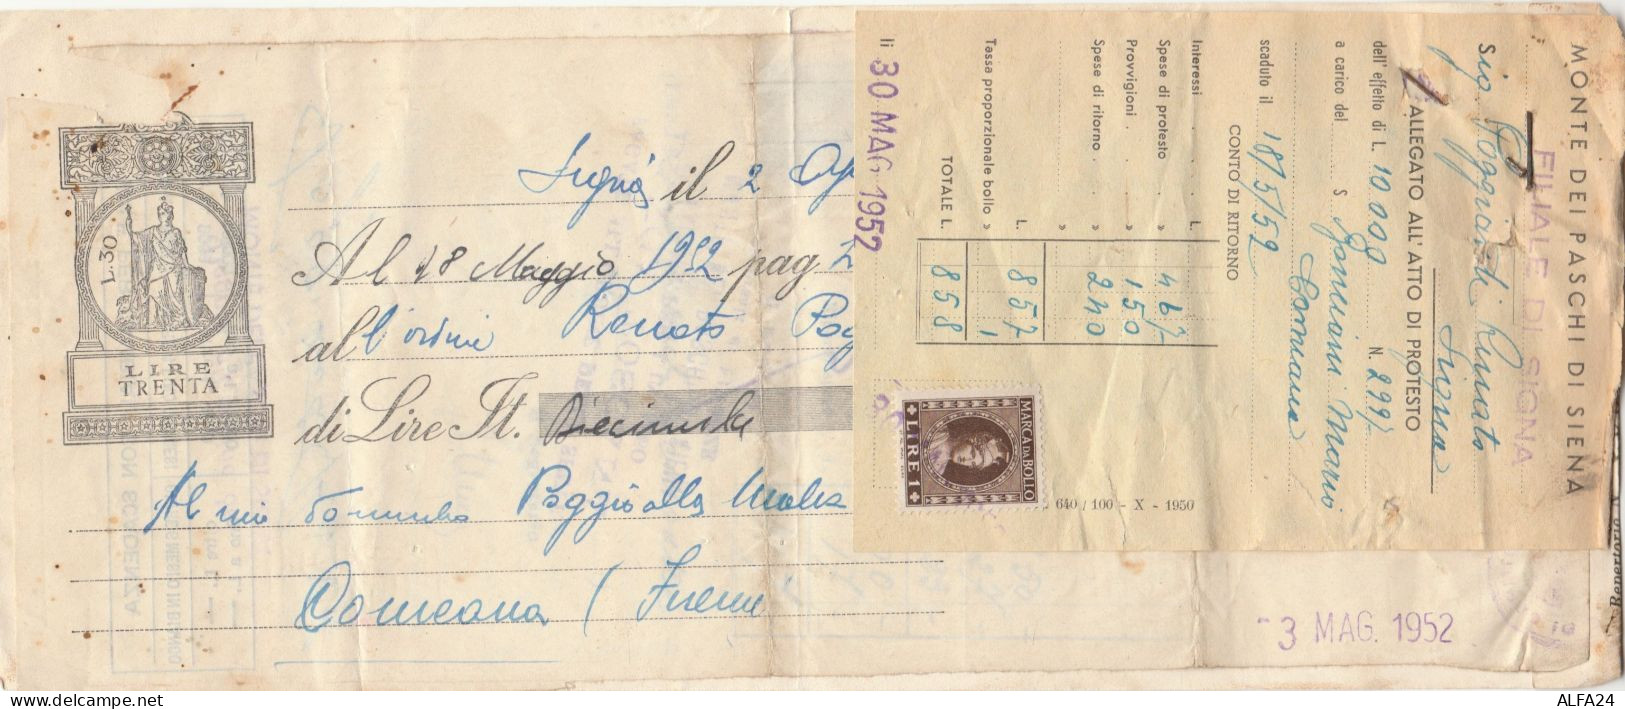 L. 30
LIRE
TRENTA
Signa il 2 Ap
Al 18 Maggio 1952 pag
all'ordine Renato Pog
di Lire It. Diecimila
Al mio domicilio Poggio alla Malva
Comeana (Firenze
MONTE DEI PASCHI DI SIENA
FILIALE DI SIGNA
Sig. Poggioni Renato
Signa
ALLEGATO ALL' ATTO DI PROTESTO
dell' effetto di L. 10.000 N. 2992
a carico del S Mario
Comeana
scaduto il 18/5/52
CONTO DI RITORNO
Interessi L.
Spese di protesto » 467
Provvigioni » 150
Spese di ritorno » 240
L. 857
Tassa proporzionale bollo » 1
TOTALE L. 858
li 30 MAG 1952
MARCA DA BOLLO
LIRE 1
640 / 100 - X - 1950
3 MAG. 1952
ALFA24